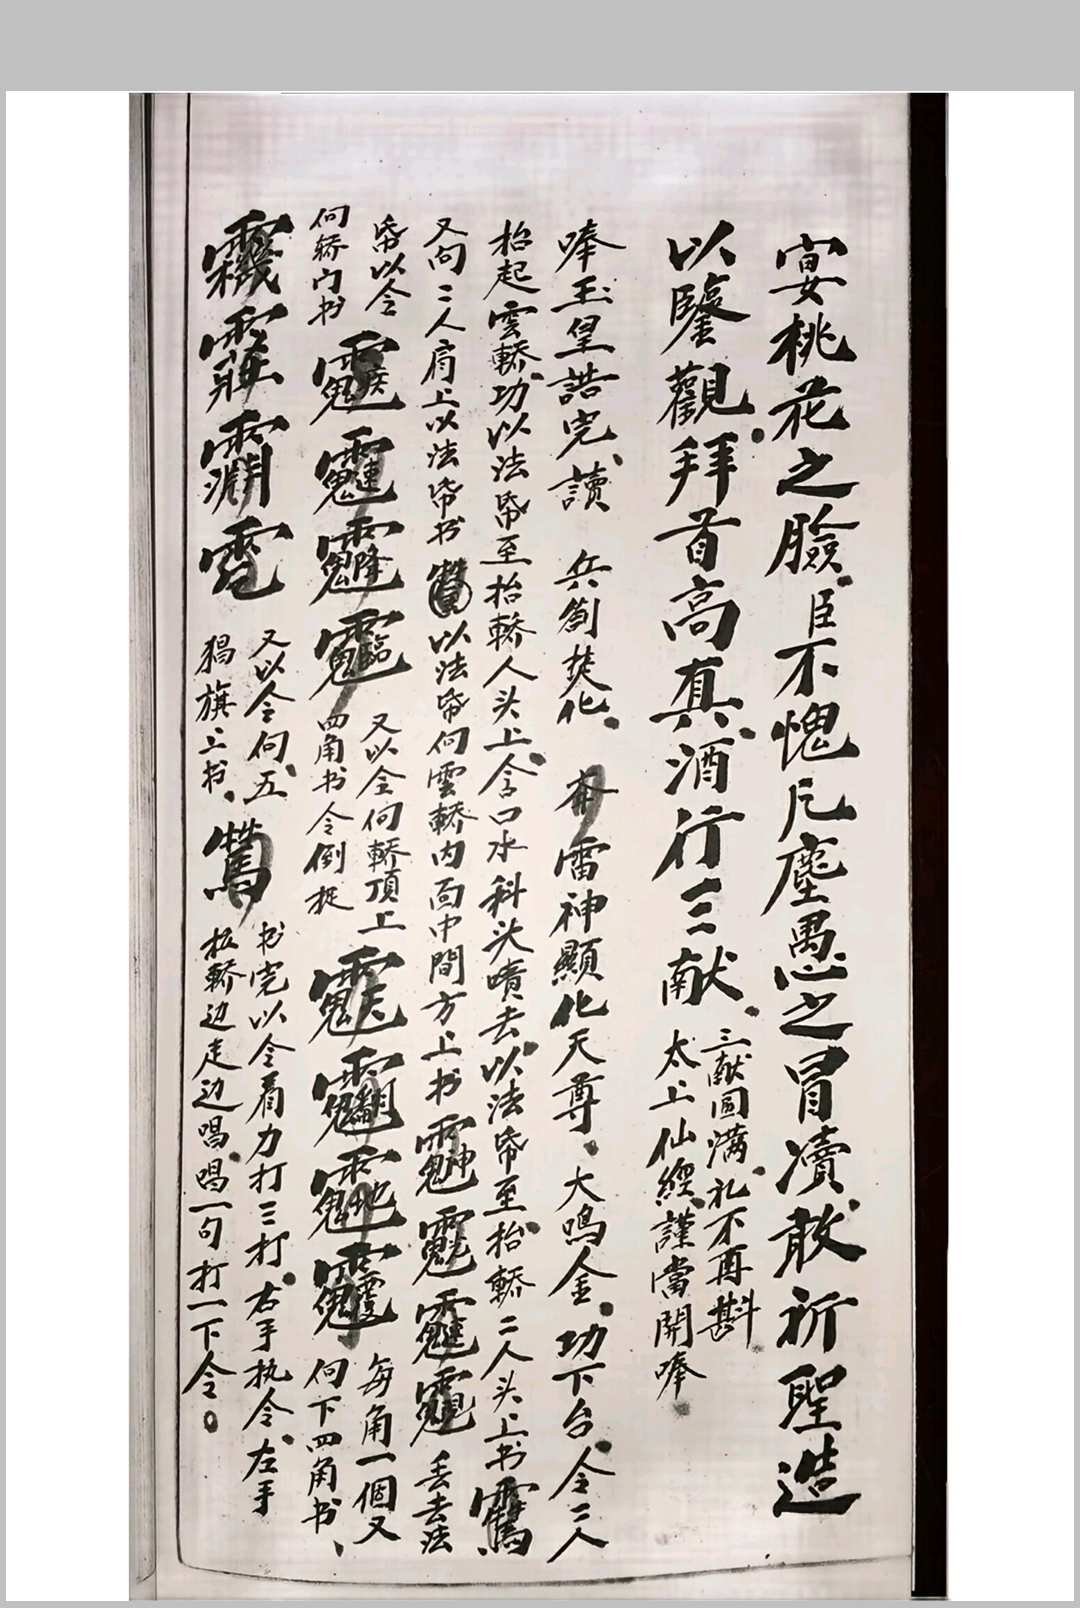 宴桃花之臉臣不愧凡塵愚之冒渎敢祈聖造
以鑒觀拜首高真酒行三献
三献圆满礼不再斟
太上仙經謹當開唪
唪玉皇誥完讀 兵劄焚化 雷神顯化天尊大鳴金功下台令二人
抬起雲轎功以法帋至抬轎人头上含口水科头噴去以法帋至抬轎二人头上书
又向二人肩上以法帋书 以法帋向雲轎内面中間方上书 丢去法
帋以令
向轎门书
又以令向轎頂上
四角书令倒捉
每角一個又
向下四角书
又以令向五
猖旗上书
书完以令着力打三打右手执令左手
板轎边走边唱唱一句打一下令